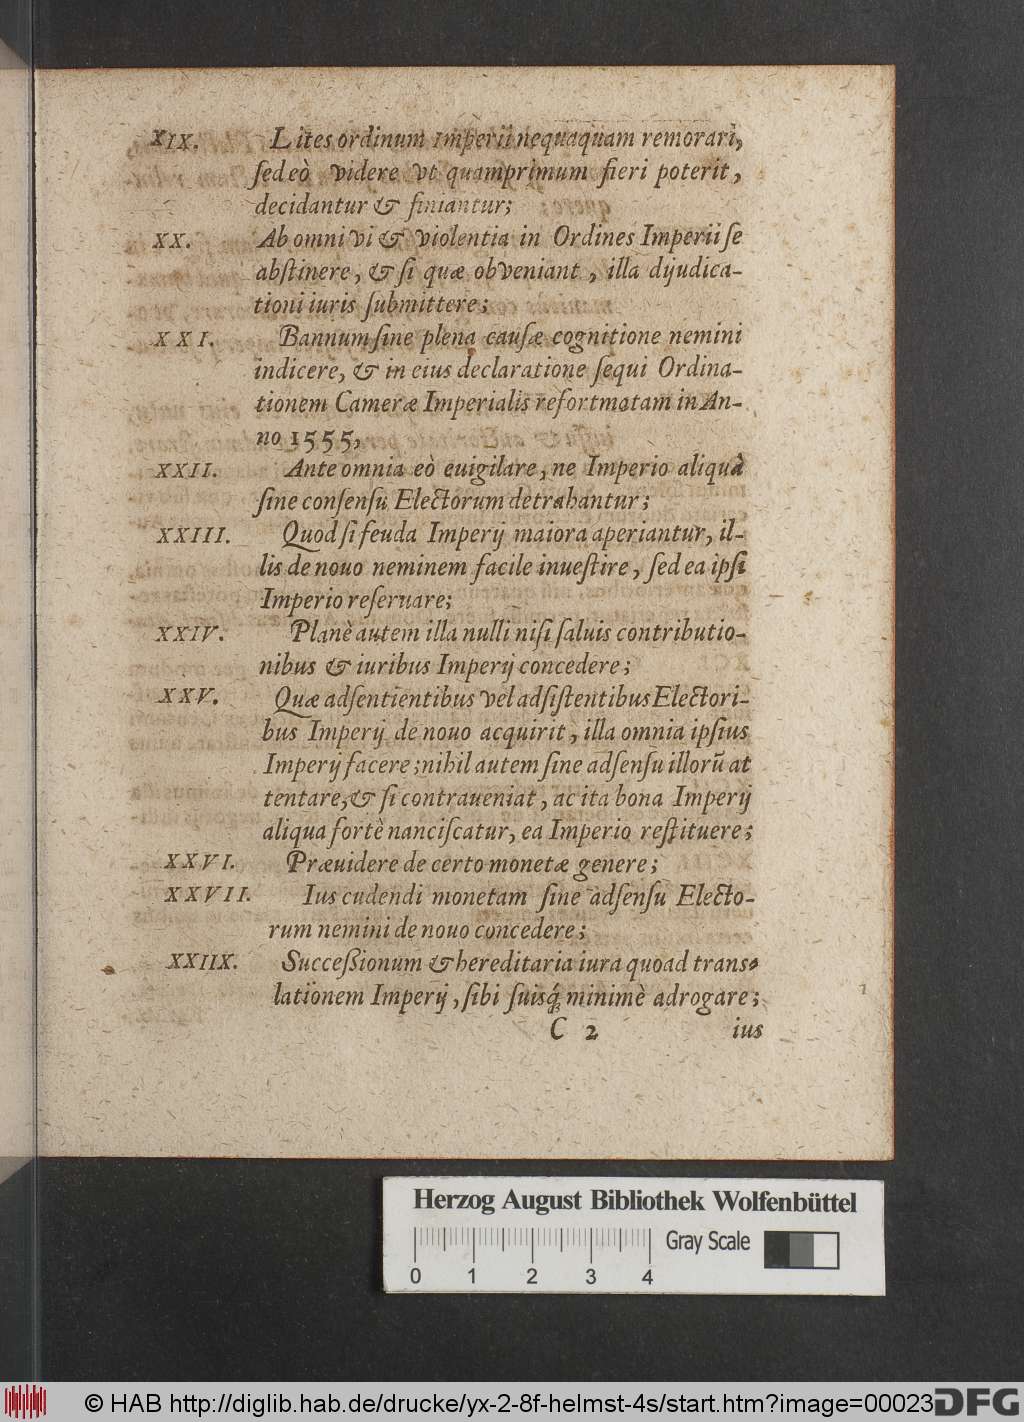 XIX. Lites ordinum Imperii nequaquam remorari,
ſed eò videre vt quamprimum fieri poterit,
decidantur & finiantur;
XX. Ab omni vi & violentia in Ordines Imperii ſe
abſtinere, & ſi quæ obveniant, illa dijudica-
tioni iuris ſubmittere;
XXI. Bannum ſine plena cauſæ cognitione nemini
indicere, & in eius declaratione ſequi Ordina-
tionem Cameræ Imperialis refortmatam in An-
no 1555,
XXII. Ante omnia eò euigilare, ne Imperio aliquà
ſine conſenſu Electorum detrahantur;
XXIII. Quod ſi feuda Imperij maiora aperiantur, il-
lis de nouo neminem facile inueſtire, ſed ea ipſi
Imperio reſeruare;
XXIV. Planè autem illa nulli niſi ſaluis contributio-
nibus & iuribus Imperij concedere;
XXV. Quæ adſentientibus vel adſiſtentibus Electori-
bus Imperij de nouo acquirit, illa omnia ipſius
Imperij facere; nihil autem ſine adſenſu illorũ at
tentare, & ſi contraueniat, ac ita bona Imperij
aliqua fortè nanciſcatur, ea Imperio reſtituere;
XXVI. Præuidere de certo monetæ genere;
XXVII. Ius cudendi monetam ſine adſenſu Electo-
rum nemini de nouo concedere;
XXIIX. Succeßionum & hereditaria iura quoad trans-
lationem Imperij, ſibi ſuisq́; minimè adrogare;
C 2 ius
Herzog August Bibliothek Wolfenbüttel
Gray Scale
0 1 2 3 4
© HAB http://diglib.hab.de/drucke/yx-2-8f-helmst-4s/start.htm?image=00023
DFG